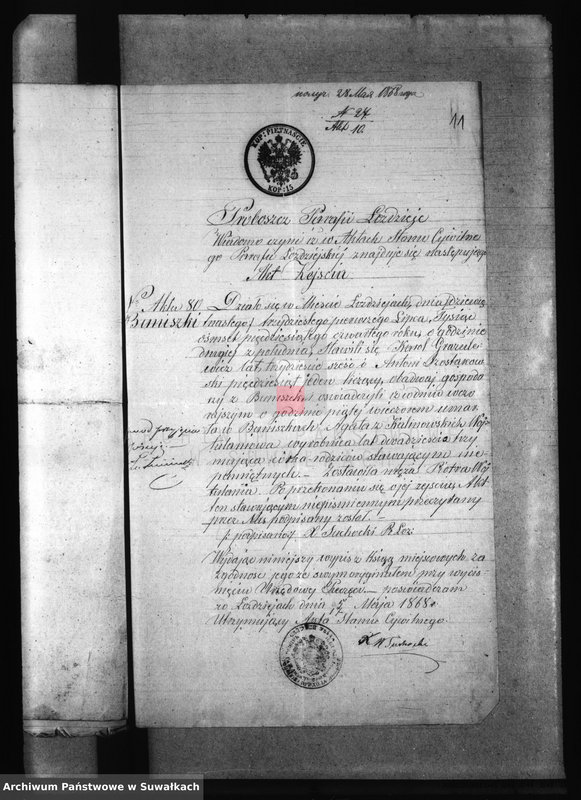 получ. 28 Мая 1868 года
N 27
Akt 10.
11
KOP: PIĘTNAŚCIE
KOP: 15
Proboszcz Parafii Łoździeje
Wiadomo czyni iż w Aktach Stanu Cywilne
go Parafii Łoździejskiej znajduje się następujący
Akt Zejścia
N. Akta 80
Buniszki
Działo się w Mieście Łoździejach, dnia
trzydziestego pierwszego Lipca, Tysiąc
ośmset pięćdziesiątego czwartego roku, o godzinie
drugiej z południa, Stawili się Karol
lat trzydzieści sześć i Antoni
pięćdziesiąt jeden liczący, obadwaj gospoda
rzy z Buniszek, i oświadczyli iż w dniu wczo
rajszym o godzinie piątej wieczorem umar
ła w Buniszkach, Agata z
wyrobnica lat dwadzieścia trzy
mająca córka rodziców stawającym nie
pamiętnych. – Zostawiła męża Piotra
Po przekonaniu się o jej zejściu, Akt
ten stawającym niepiśmiennym przeczytany
przez Nas podpisany został. –
podpisano X Suchocki
Wydając niniejszy wypis z Ksiąg miejscowych za
zgodność jego ze swym oryginałem przy wycis
nięciu Urzędowej Pieczęci – poświadczam
w Łoździejach dnia Maja 1868 r.
Utrzymujący Akta Stanu Cywilnego.
X Suchocki
Archiwum Państwowe w Suwałkach